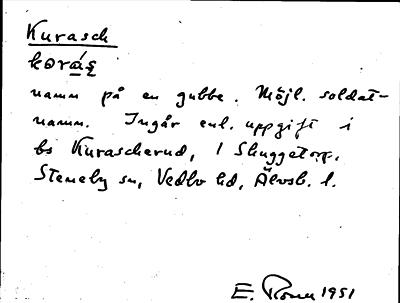 Kurasch
kɵrás̨
namn på en gubbe. Möjl. soldat-
namn. Ingår enl. uppgift i
bs Kurascherud, / Skuggetorp.
Steneby sn, Vedbo hd, Älvsb. l.
E. 1951